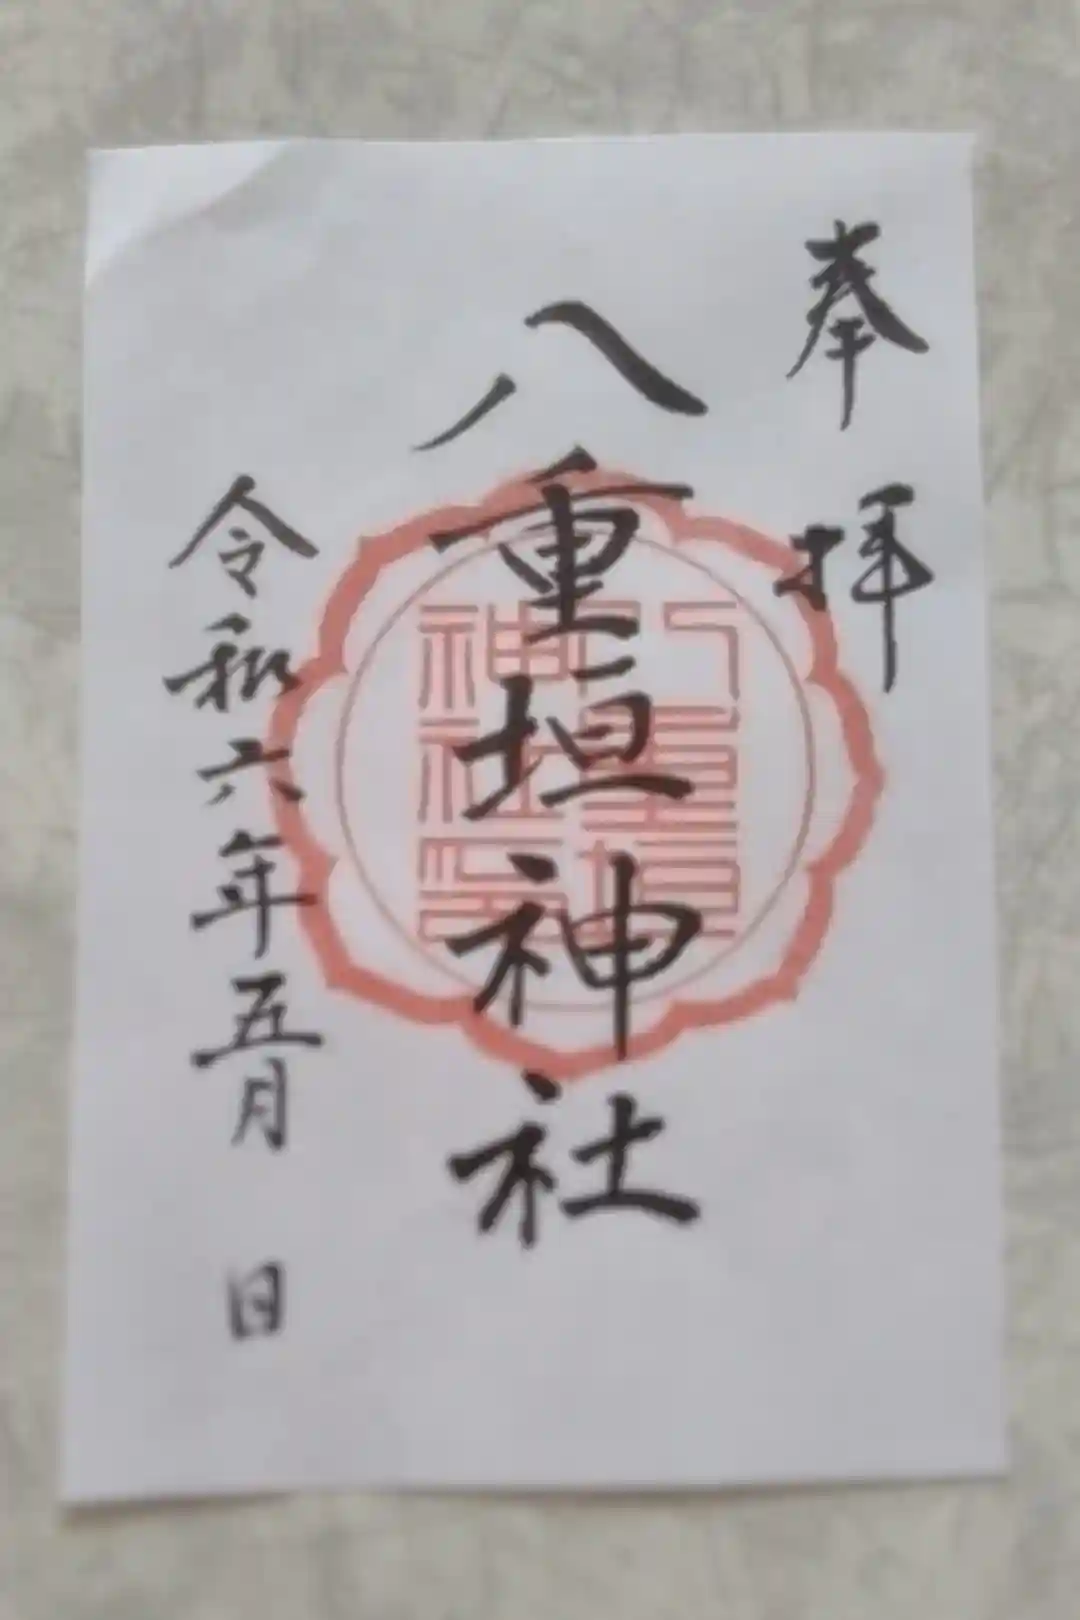 奉拝
八重垣神社
八重垣
神社印
令和六年五月 日